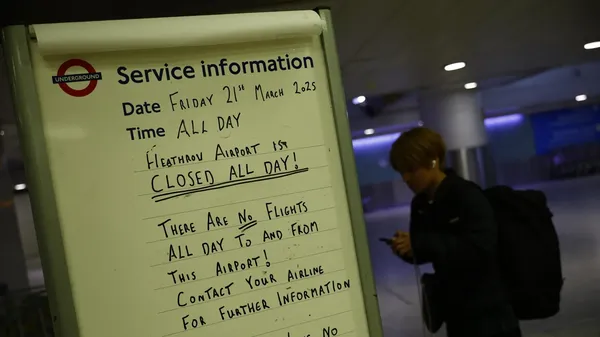 UNDERGROUND
Service information
Date FRIDAY 21st MARCH 2025
Time ALL DAY
HEATHROW AIRPORT IS
CLOSED ALL DAY!
THERE ARE NO FLIGHTS
ALL DAY TO AND FROM
THIS AIRPORT!
CONTACT YOUR AIRLINE
FOR FURTHER INFORMATION
NO